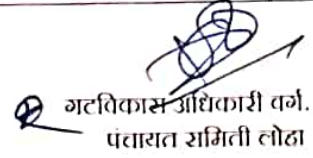 गटविकास अधिकारी वर्ग.
पंचायत समिती लोहा